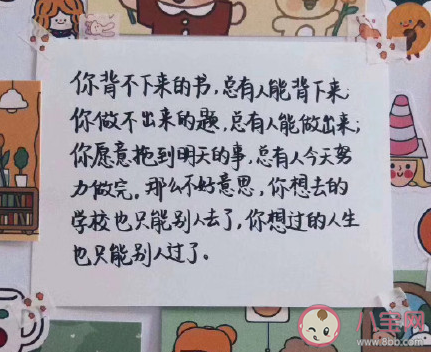 你背不下来的书，总有人能背下来；
你做不出来的题，总有人能做出来；
你愿意拖到明天的事，总有人今天努
力做完。那么不好意思，你想去的
学校也只能别人去了，你想过的人生
也只能别人过了。
八宝网
www.8bb.com